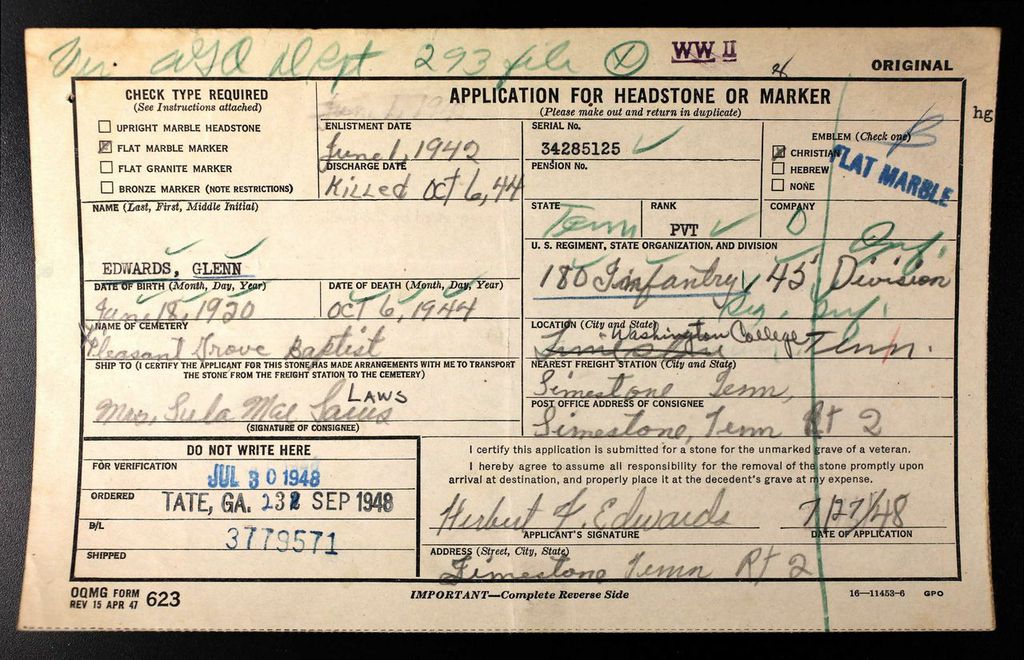 Ver. AGO Dept 293 file X WW II
ORIGINAL
CHECK TYPE REQUIRED
(See Instructions attached)
UPRIGHT MARBLE HEADSTONE
FLAT MARBLE MARKER
FLAT GRANITE MARKER
BRONZE MARKER (NOTE RESTRICTIONS)
APPLICATION FOR HEADSTONE OR MARKER
(Please make out and return in duplicate)
hg
ENLISTMENT DATE
June 1, 1942
DISCHARGE DATE
Killed Oct 6, 44
SERIAL No.
34285125
PENSION No.
EMBLEM (Check one)
B
CHRISTIAN
HEBREW
NONE
FLAT MARBLE
NAME (Last, First, Middle Initial)
EDWARDS, GLENN
STATE
Tenn
RANK
PVT
COMPANY
D
U. S. REGIMENT, STATE ORGANIZATION, AND DIVISION
Inf.
180 Infantry, 45 Division
Inf.
DATE OF BIRTH (Month, Day, Year)
June 18, 1920
DATE OF DEATH (Month, Day, Year)
Oct 6, 1944
NAME OF CEMETERY
Pleasant Grove Baptist
LOCATION (City and State)
Washington College Tenn.
SHIP TO (I CERTIFY THE APPLICANT FOR THIS STONE HAS MADE ARRANGEMENTS WITH ME TO TRANSPORT
THE STONE FROM THE FREIGHT STATION TO THE CEMETERY)
LAWS
Mrs. Lula Mae Laws
(SIGNATURE OF CONSIGNEE)
NEAREST FREIGHT STATION (City and State)
Limestone Tenn,
POST OFFICE ADDRESS OF CONSIGNEE
Limestone, Tenn Rt 2
DO NOT WRITE HERE
FOR VERIFICATION
JUL 30 1948
ORDERED
TATE, GA. 232 SEP 1948
B/L
3779571
SHIPPED
I certify this application is submitted for a stone for the unmarked grave of a veteran.
I hereby agree to assume all responsibility for the removal of the stone promptly upon
arrival at destination, and properly place it at the decedent's grave at my expense.
Herbert F. Edwards 7/27/48
APPLICANT'S SIGNATURE
DATE OF APPLICATION
ADDRESS (Street, City, State)
Limestone Tenn Rt 2
OQMG FORM
REV 15 APR 47 623
IMPORTANT—Complete Reverse Side
16—11453-6 GPO